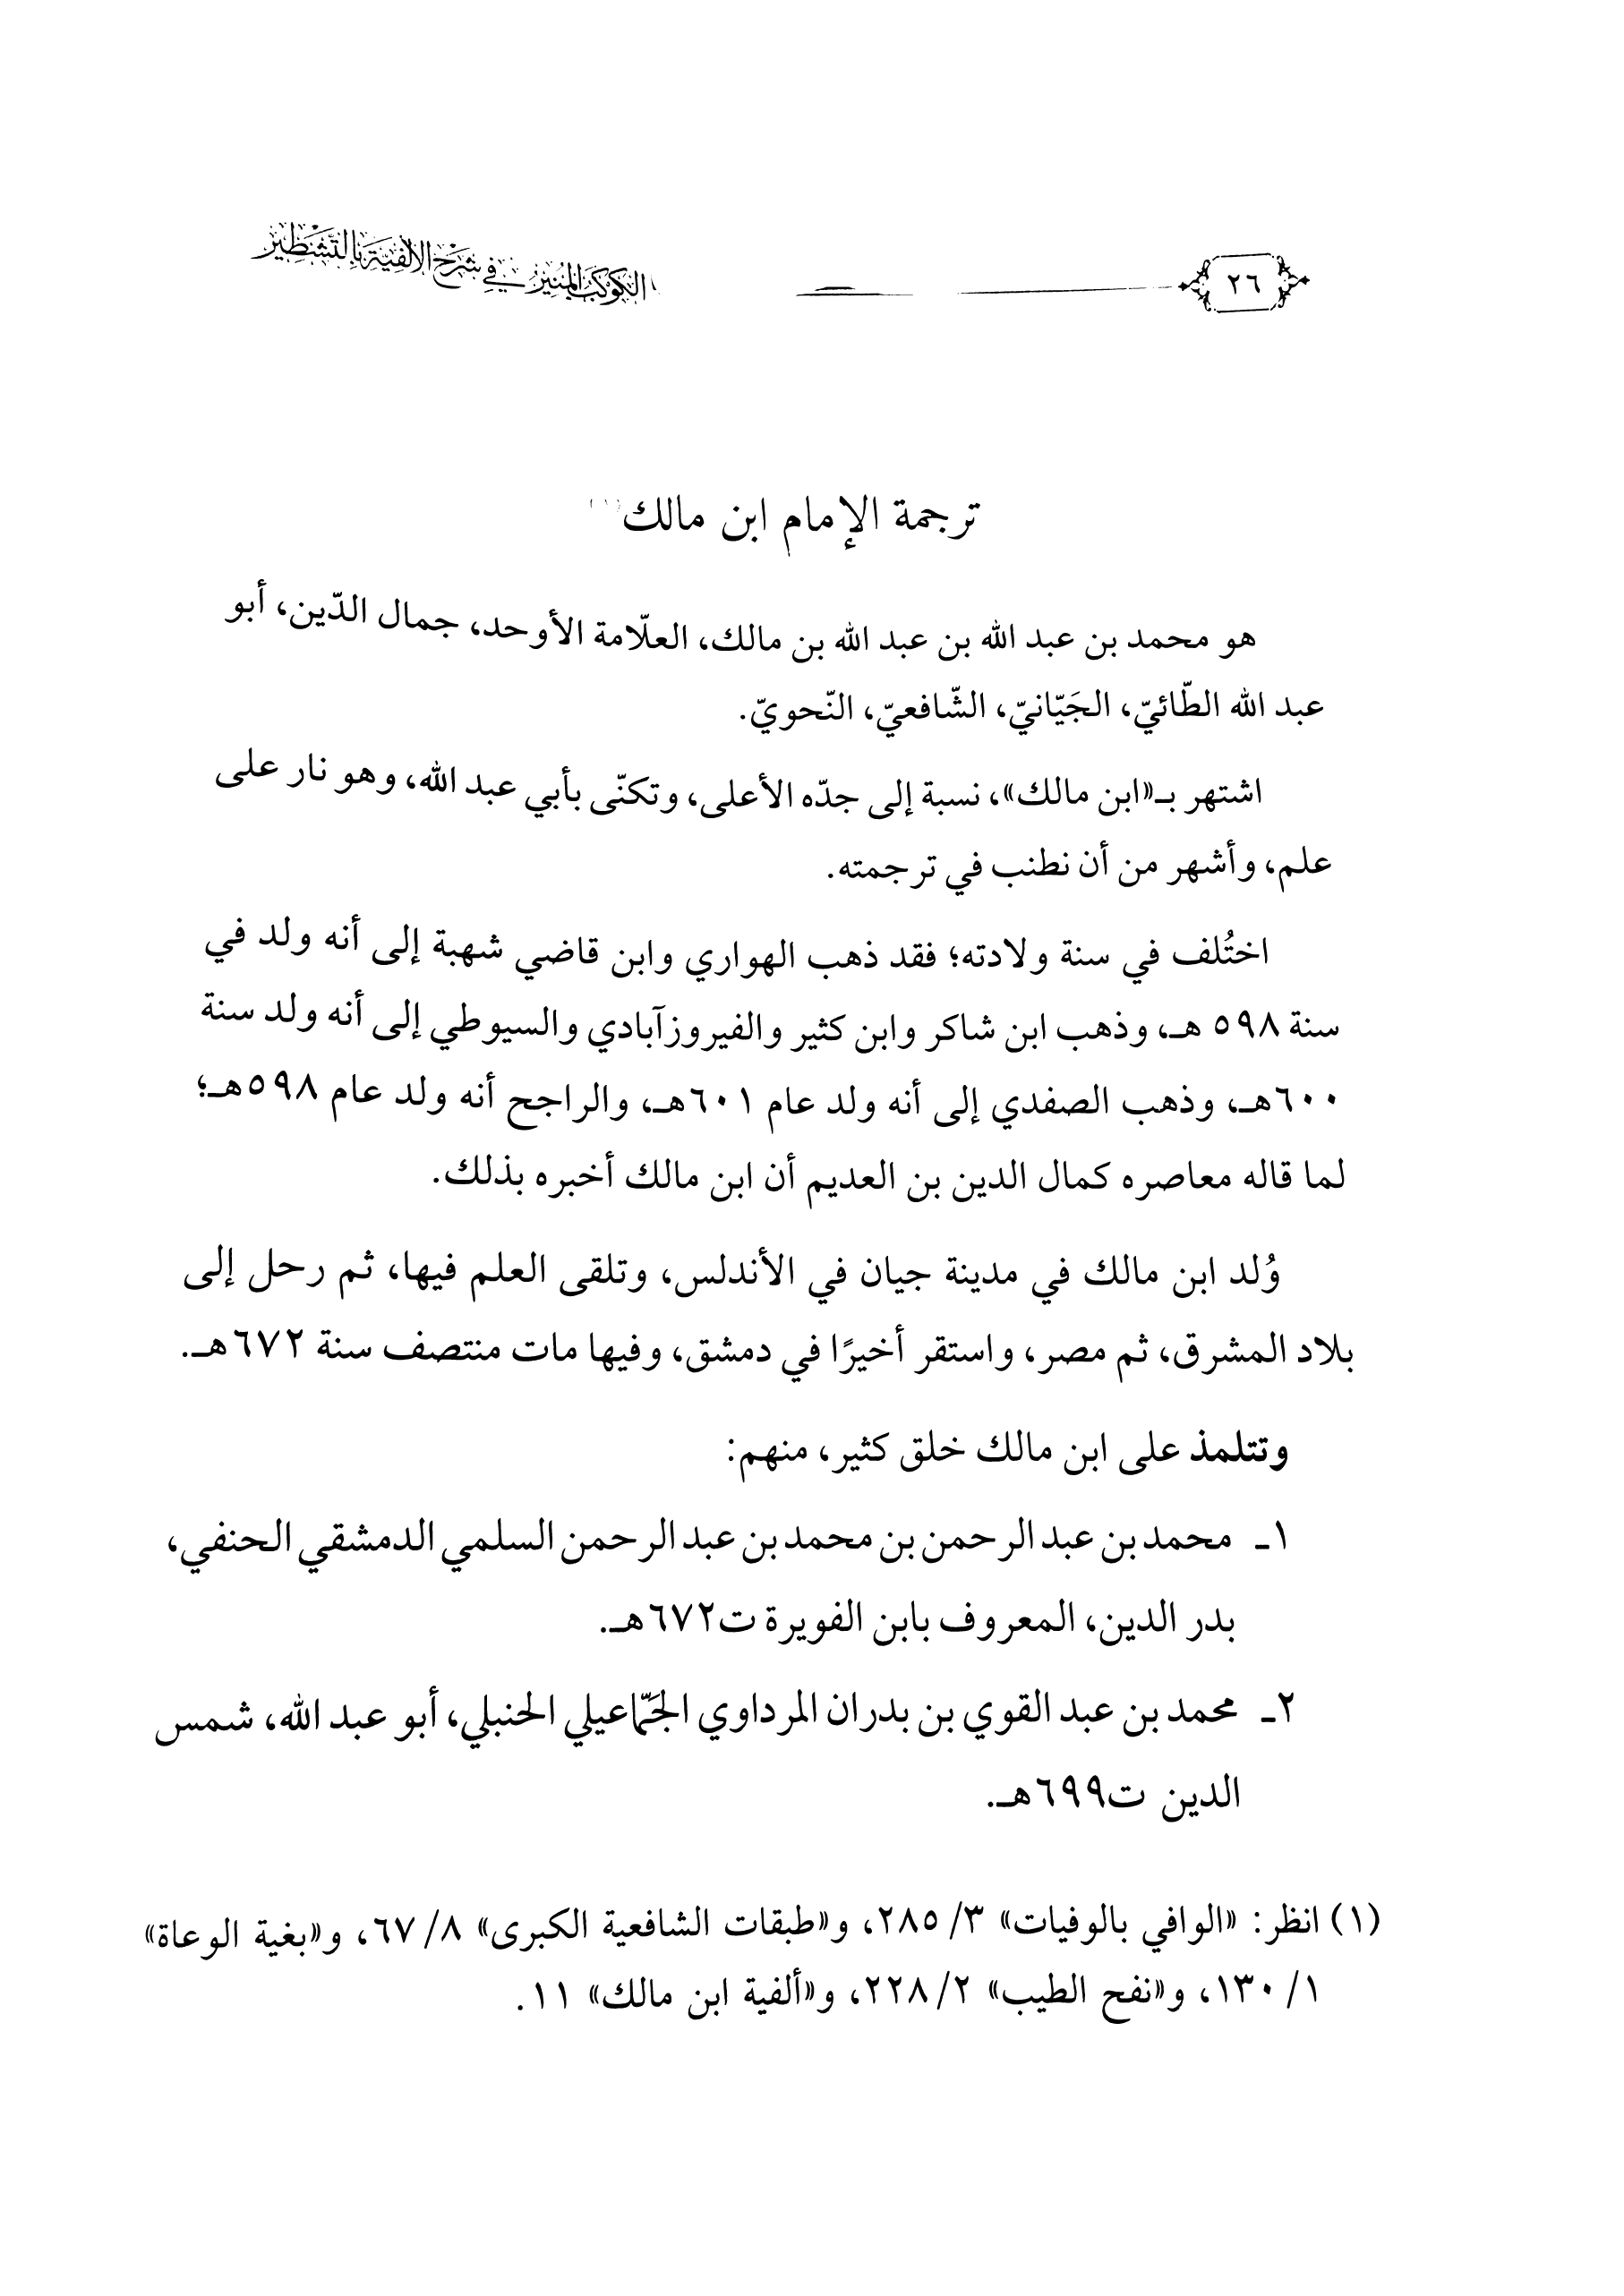 ٢٦
الكَوْكَبُ المُنِيرُ فِي شَرْحِ الأَلْفِيَّةِ بِالتَّشْطِيرِ
ترجمة الإمام ابن مالك
هو محمد بن عبد الله بن عبد الله بن مالك، العلّامة الأوحد، جمال الدّين، أبو
عبد الله الطّائيّ، الجَيّانيّ، الشّافعيّ، النّحويّ.
اشتهر بـ«ابن مالك»، نسبة إلى جدّه الأعلى، وتكنّى بأبي عبد الله، وهو نار على
علم، وأشهر من أن نطنب في ترجمته.
اختُلف في سنة ولادته؛ فقد ذهب الهواري وابن قاضي شهبة إلى أنه ولد في
سنة ٥٩٨ هـ، وذهب ابن شاكر وابن كثير والفيروزآبادي والسيوطي إلى أنه ولد سنة
٦٠٠هـ، وذهب الصفدي إلى أنه ولد عام ٦٠١هـ، والراجح أنه ولد عام ٥٩٨هـ؛
لما قاله معاصره كمال الدين بن العديم أن ابن مالك أخبره بذلك.
وُلد ابن مالك في مدينة جيان في الأندلس، وتلقى العلم فيها، ثم رحل إلى
بلاد المشرق، ثم مصر، واستقر أخيرًا في دمشق، وفيها مات منتصف سنة ٦٧٢هـ.
وتتلمذ على ابن مالك خلق كثير، منهم:
١ـ محمد بن عبد الرحمن بن محمد بن عبد الرحمن السلمي الدمشقي الحنفي،
بدر الدين، المعروف بابن الفويرة ت٦٧٢هـ.
٢ـ محمد بن عبد القوي بن بدران المرداوي الجَمّاعيلي الحنبلي، أبو عبد الله، شمس
الدين ت٦٩٩هـ.
(١) انظر: «الوافي بالوفيات» ٣/ ٢٨٥، و«طبقات الشافعية الكبرى» ٨/ ٦٧، و«بغية الوعاة»
١/ ١٣٠، و«نفح الطيب» ٢/ ٢٢٨، و«ألفية ابن مالك» ١١.